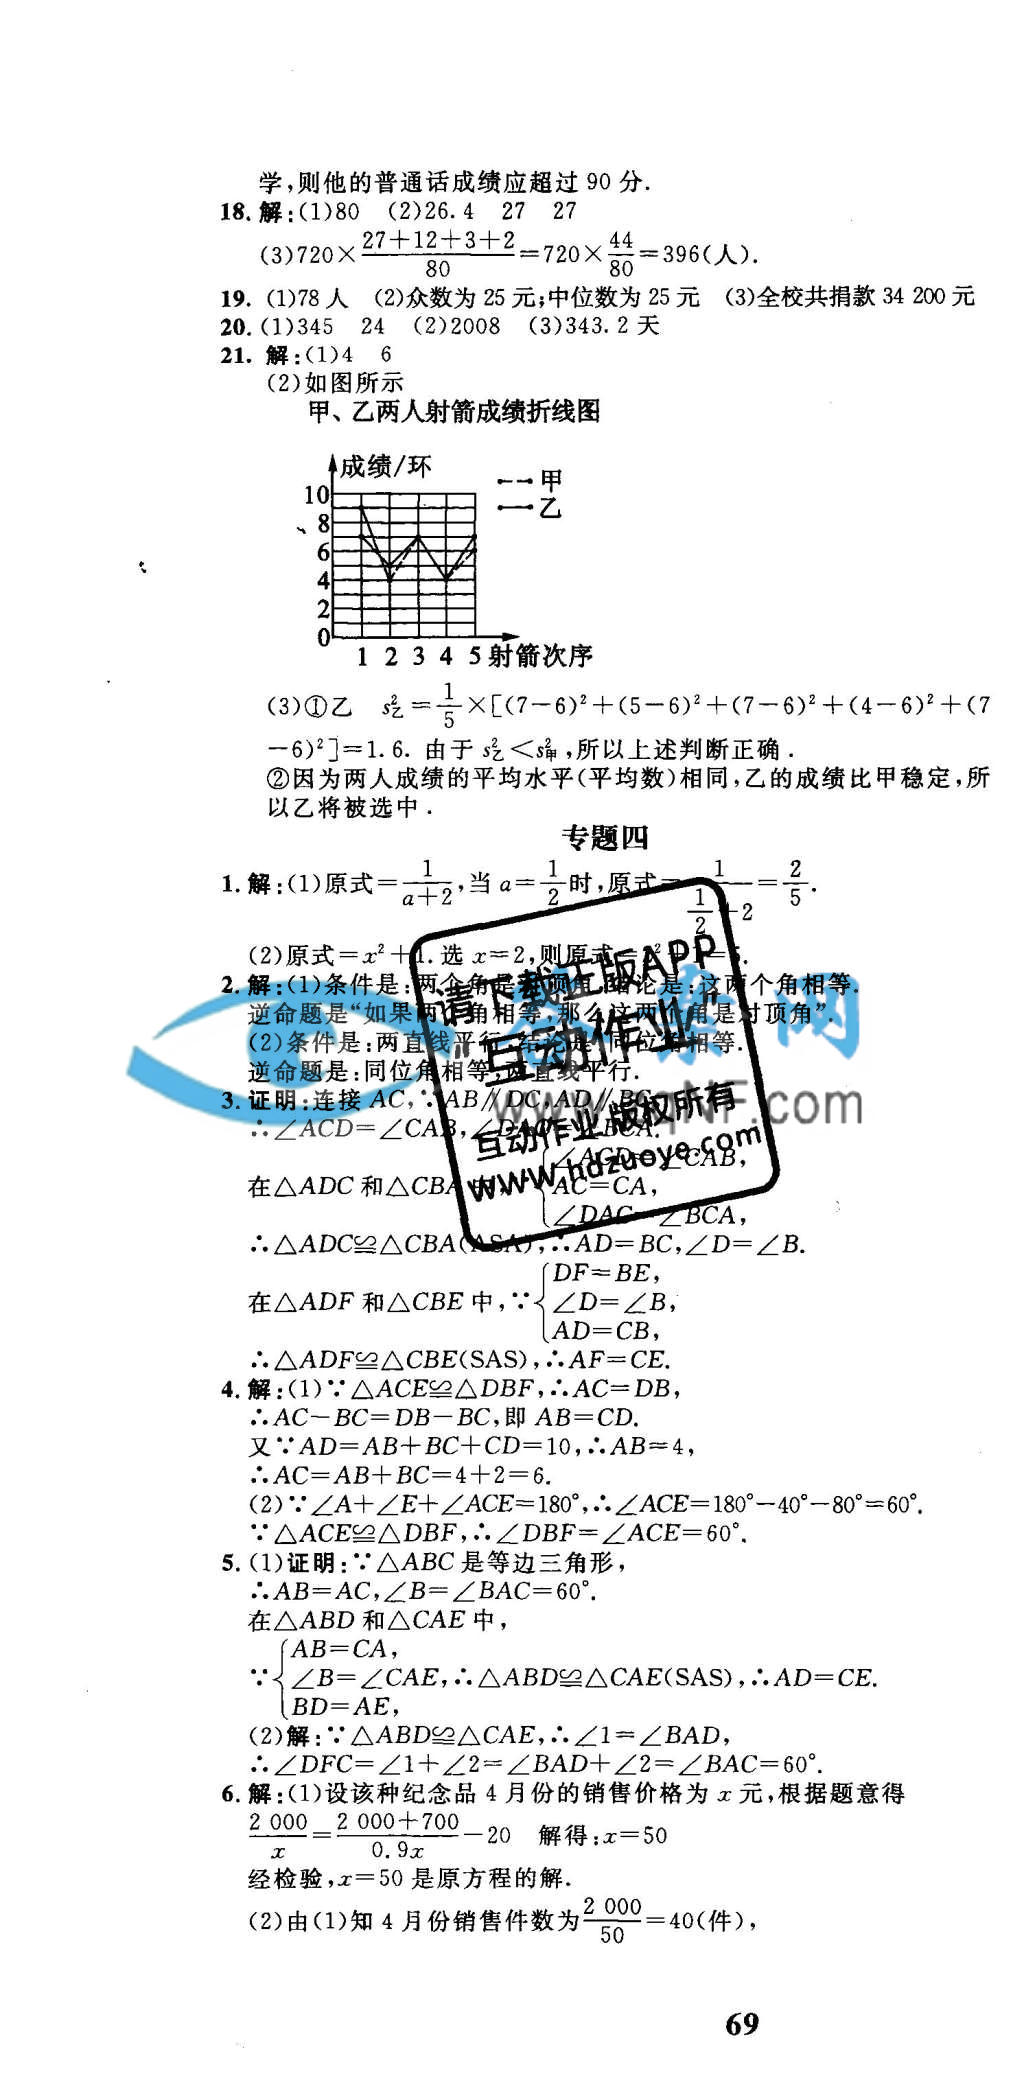 学,则他的普通话成绩应超过 90 分.
18. 解:(1)80 (2)26.4 27 27
(3)720×(27+12+3+2)/80=720×44/80=396(人).
19. (1)78 人 (2)众数为 25 元;中位数为 25 元 (3)全校共捐款 34 200 元
20. (1)345 24 (2)2008 (3)343.2 天
21. 解:(1)4 6
(2)如图所示
甲、乙两人射箭成绩折线图
成绩/环
甲
乙
10
8
6
4
2
0
1 2 3 4 5 射箭次序
(3)①乙 s²乙=1/5×[(7-6)²+(5-6)²+(7-6)²+(4-6)²+(7
-6)²]=1.6. 由于 s²乙<s²甲,所以上述判断正确.
②因为两人成绩的平均水平(平均数)相同,乙的成绩比甲稳定,所
以乙将被选中.
专题四
1. 解:(1)原式=1/(a+2),当 a=1/2时,原式=1/(1/2+2)=2/5.
(2)原式=x²+1.选 x=2,则原式=2²+1=5.
2. 解:(1)条件是:两个角是对顶角,结论是:这两个角相等.
逆命题是“如果两个角相等,那么这两个角是对顶角”.
(2)条件是:两直线平行,结论是:同位角相等.
逆命题是:同位角相等,两直线平行.
3. 证明:连接 AC,∵AB∥DC,AD∥BC,
∴∠ACD=∠CAB,∠DAC=∠BCA.
在△ADC 和△CBA 中,∵{∠ACD=∠CAB,
AC=CA,
∠DAC=∠BCA,
∴△ADC≌△CBA(ASA),∴AD=BC,∠D=∠B.
在△ADF 和△CBE 中,∵{DF=BE,
∠D=∠B,
AD=CB,
∴△ADF≌△CBE(SAS),∴AF=CE.
4. 解:(1)∵△ACE≌△DBF,∴AC=DB,
∴AC-BC=DB-BC,即 AB=CD.
又∵AD=AB+BC+CD=10,∴AB=4,
∴AC=AB+BC=4+2=6.
(2)∵∠A+∠E+∠ACE=180°,∴∠ACE=180°-40°-80°=60°.
∵△ACE≌△DBF,∴∠DBF=∠ACE=60°.
5. (1)证明:∵△ABC 是等边三角形,
∴AB=AC,∠B=∠BAC=60°.
在△ABD 和△CAE 中,
∵{AB=CA,
∠B=∠CAE,∴△ABD≌△CAE(SAS),∴AD=CE.
BD=AE,
(2)解:∵△ABD≌△CAE,∴∠1=∠BAD,
∴∠DFC=∠1+∠2=∠BAD+∠2=∠BAC=60°.
6. 解:(1)设该种纪念品 4 月份的销售价格为 x 元,根据题意得
2 000/x=(2 000+700)/0.9x-20 解得:x=50
经检验,x=50 是原方程的解.
(2)由(1)知 4 月份销售件数为2 000/50=40(件),
69
请下载正版APP
“互动作业”
互动作业 版权所有
www.hdzuoye.com